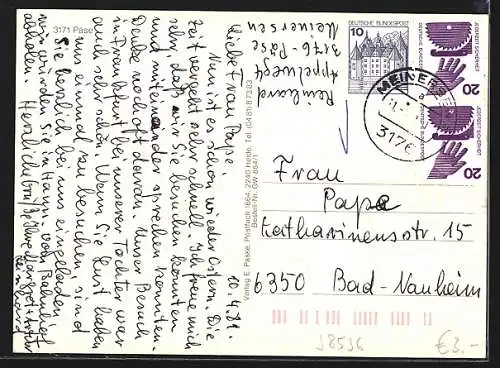 3171 Päse
10.4.81.
Liebe Frau Pape.
Nun ist es schon wieder Ostern. Die
Zeit vergeht sehr schnell. Ich freue mich
sehr, daß wir Sie besuchen konnten
und miteinander sprechen konnten.
Denke noch oft daran. Unser Besuch
in Frankfurt bei unserer Tochter war
auch sehr schön. Wenn Sie Lust haben
uns einmal zu besuchen, sind
Sie herzlich bei uns eingeladen
wir würden Sie in Hann. vom Bahnhof
abholen. Herzliche
Verlag E. Paske, Postfach 1664, 2240 Heide, Tel. (0481) 8 73 83
Bestell-Nr. GW 864/1
Reinhard
Appelweg 4
3176 Päse
Meinersen
DEUTSCHE BUNDESPOST
10
20
20
MEINERSEN
3176
Frau
Pape
Katharinenstr. 15
6350 Bad-Nauheim
J8536
€3.-